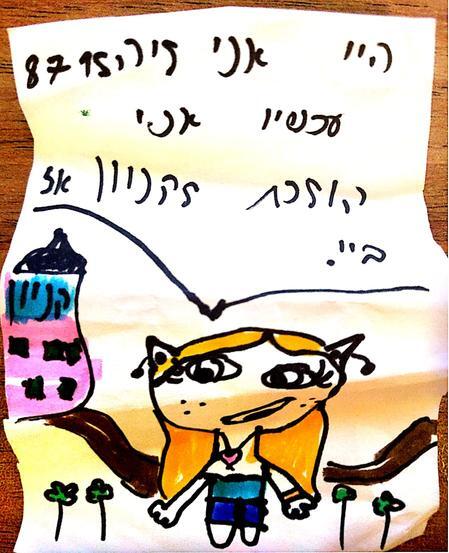 היי אני ליה8715
עכשיו אני
הולכת לקניון אז
ביי.
קניון